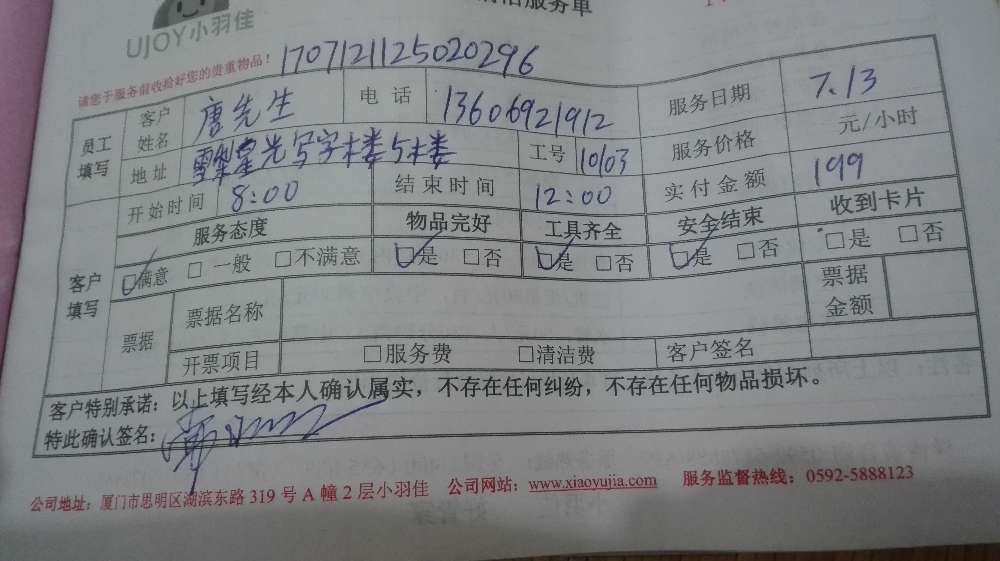 服务单
UJOY小羽佳
请您于服务前收拾好您的贵重物品！
170712112502029​6
员工填写 客户姓名 唐先生 电话 13606921912 服务日期 7.13
地址 星光写字楼5楼 工号 10103 服务价格 元/小时
开始时间 8:00 结束时间 12:00 实付金额 199
客户填写 服务态度 物品完好 工具齐全 安全结束 收到卡片
☑满意 □一般 □不满意 ☑是 □否 ☑是 □否 ☑是 □否 □是 □否
票据 票据名称 票据金额
开票项目 □服务费 □清洁费 客户签名
客户特别承诺：以上填写经本人确认属实，不存在任何纠纷，不存在任何物品损坏。
特此确认签名：
公司地址：厦门市思明区湖滨东路 319 号 A 幢 2 层小羽佳 公司网站：www.xiaoyujia.com 服务监督热线：0592-5888123